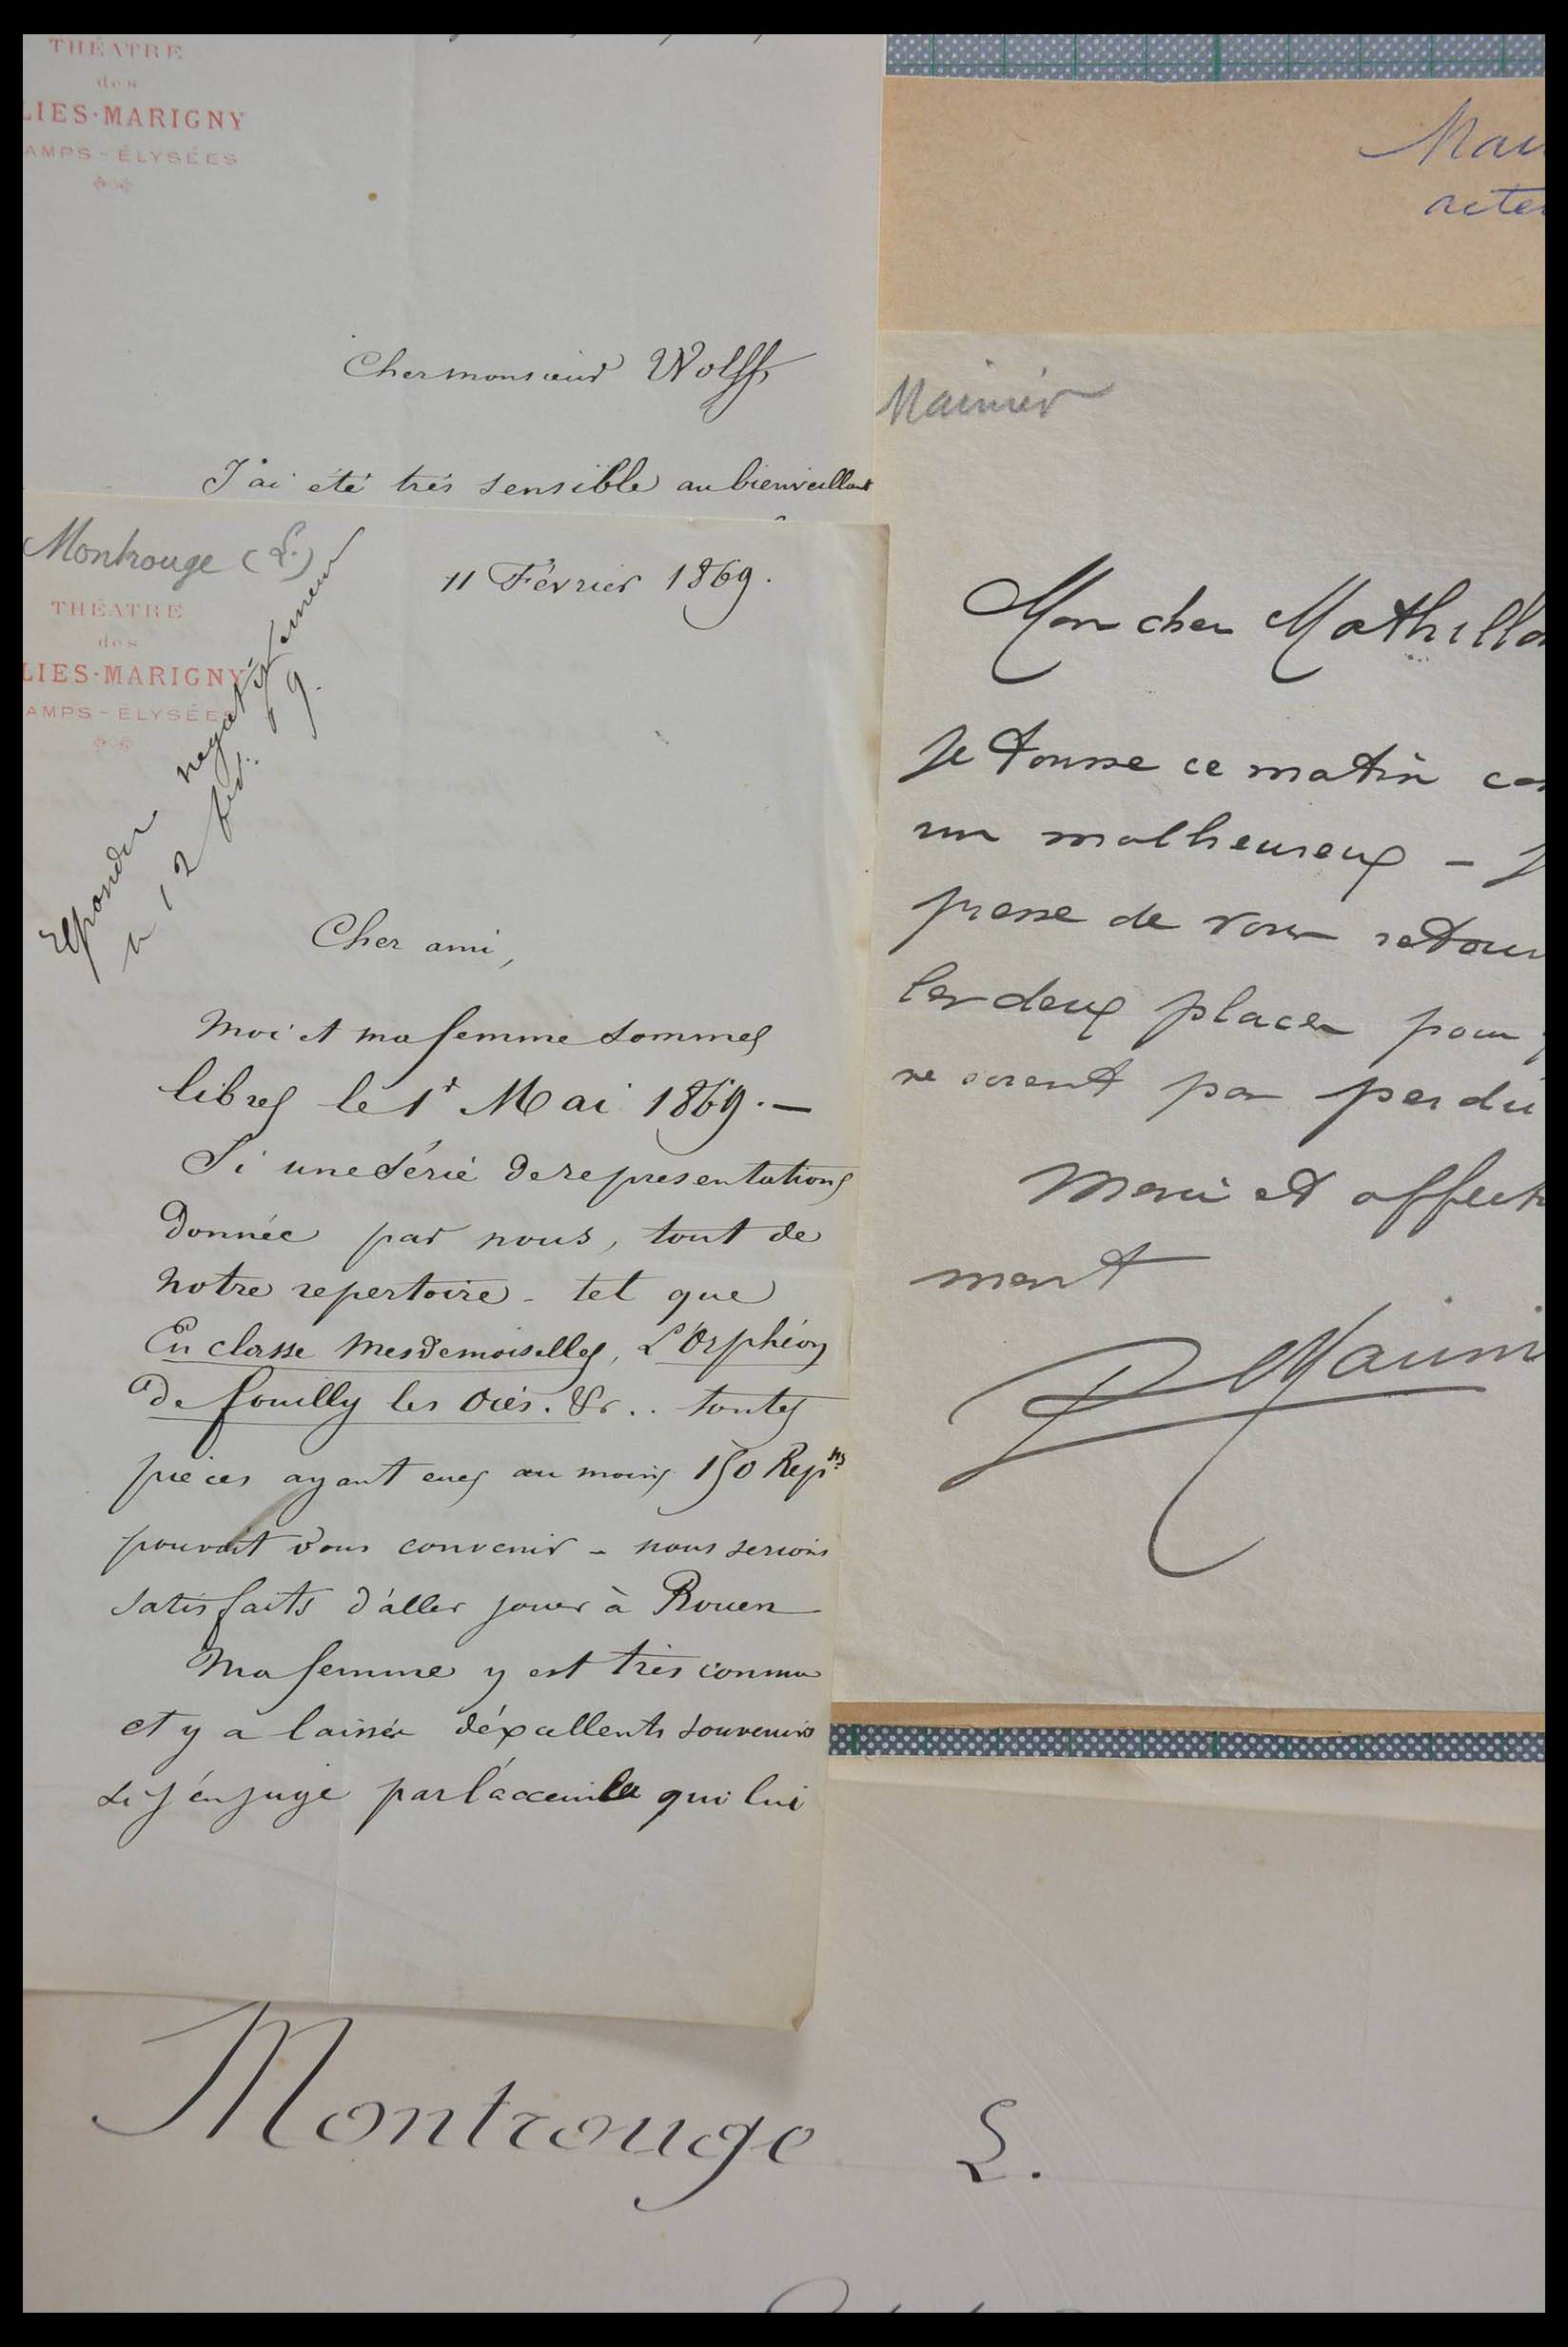 THÉATRE
des
LIES-MARIGNY
AMPS-ÉLYSÉES
Cher monsieur Wolff,
J'ai été très sensible au bienveillant
Montrouge (L.)
11 Février 1869.
THÉATRE
des
LIES-MARIGNY
AMPS-ÉLYSÉES
négativement
12 fév. 9.
Cher ami,
Moi et ma femme sommes
libres le 1r Mai 1869. —
Si une série de representations
donnée par nous, tout de
notre repertoire - tel que
En classe Mesdemoiselles, L'Orphéon
de fouilly les Oies. &c.. toutes
pièces ayant eues au moins 150 Repns
pouvait vous convenir - nous serions
satisfaits d'aller jouer à Rouen
Ma femme y est très connue
et y a laissée d'éxcellents souvenirs
si j'en juge par l'acceuil qui lui
Montrouge L.
Mau
acte
Maurier
Mon cher Mathilla
Je tousse ce matin co
un malheureux - J
presse de vous retour
les deux places pour
ne soient pas perdu
Merci et affect
ment